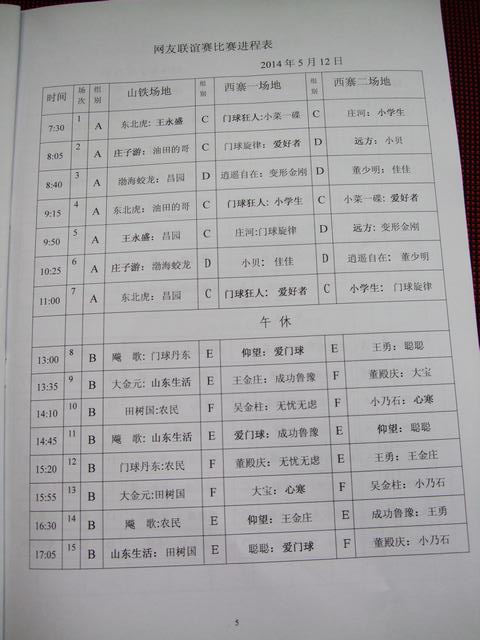 网友联谊赛比赛进程表
2014年5月12日
时间 场次 组别 山铁场地 组别 西寨一场地 组别 西寨二场地
7:30 1 A 东北虎: 王永盛 C 门球狂人:小菜一碟 C 庄河: 小学生
8:05 2 A 庄子游: 油田的哥 C 门球旋律: 爱好者 D 远方: 小贝
8:40 3 A 渤海蛟龙: 昌园 D 逍遥自在: 变形金刚 D 董少明: 佳佳
9:15 4 A 东北虎: 油田的哥 C 门球狂人: 小学生 C 小菜一碟: 爱好者
9:50 5 A 王永盛: 昌园 C 庄河:门球旋律 D 远方: 变形金刚
10:25 6 A 庄子游: 渤海蛟龙 D 小贝: 佳佳 D 逍遥自在: 董少明
11:00 7 A 东北虎: 昌园 C 门球狂人: 爱好者 C 小学生: 门球旋律
午 休
13:00 8 B 飚 歌: 门球丹东 E 仰望: 爱门球 E 王勇: 聪聪
13:35 9 B 大金元: 山东生活 E 王金庄: 成功鲁豫 F 董殿庆: 大宝
14:10 10 B 田树国:农民 F 吴金柱: 无忧无虑 F 小乃石: 心寒
14:45 11 B 飚 歌: 山东生活 E 爱门球: 成功鲁豫 E 仰望: 聪聪
15:20 12 B 门球丹东:农民 F 董殿庆: 无忧无虑 E 王勇: 王金庄
15:55 13 B 大金元:田树国 F 大宝: 心寒 F 吴金柱: 小乃石
16:30 14 B 飚 歌:农民 E 仰望: 王金庄 E 成功鲁豫: 王勇
17:05 15 B 山东生活: 田树国 E 聪聪: 爱门球 F 董殿庆: 小乃石
5